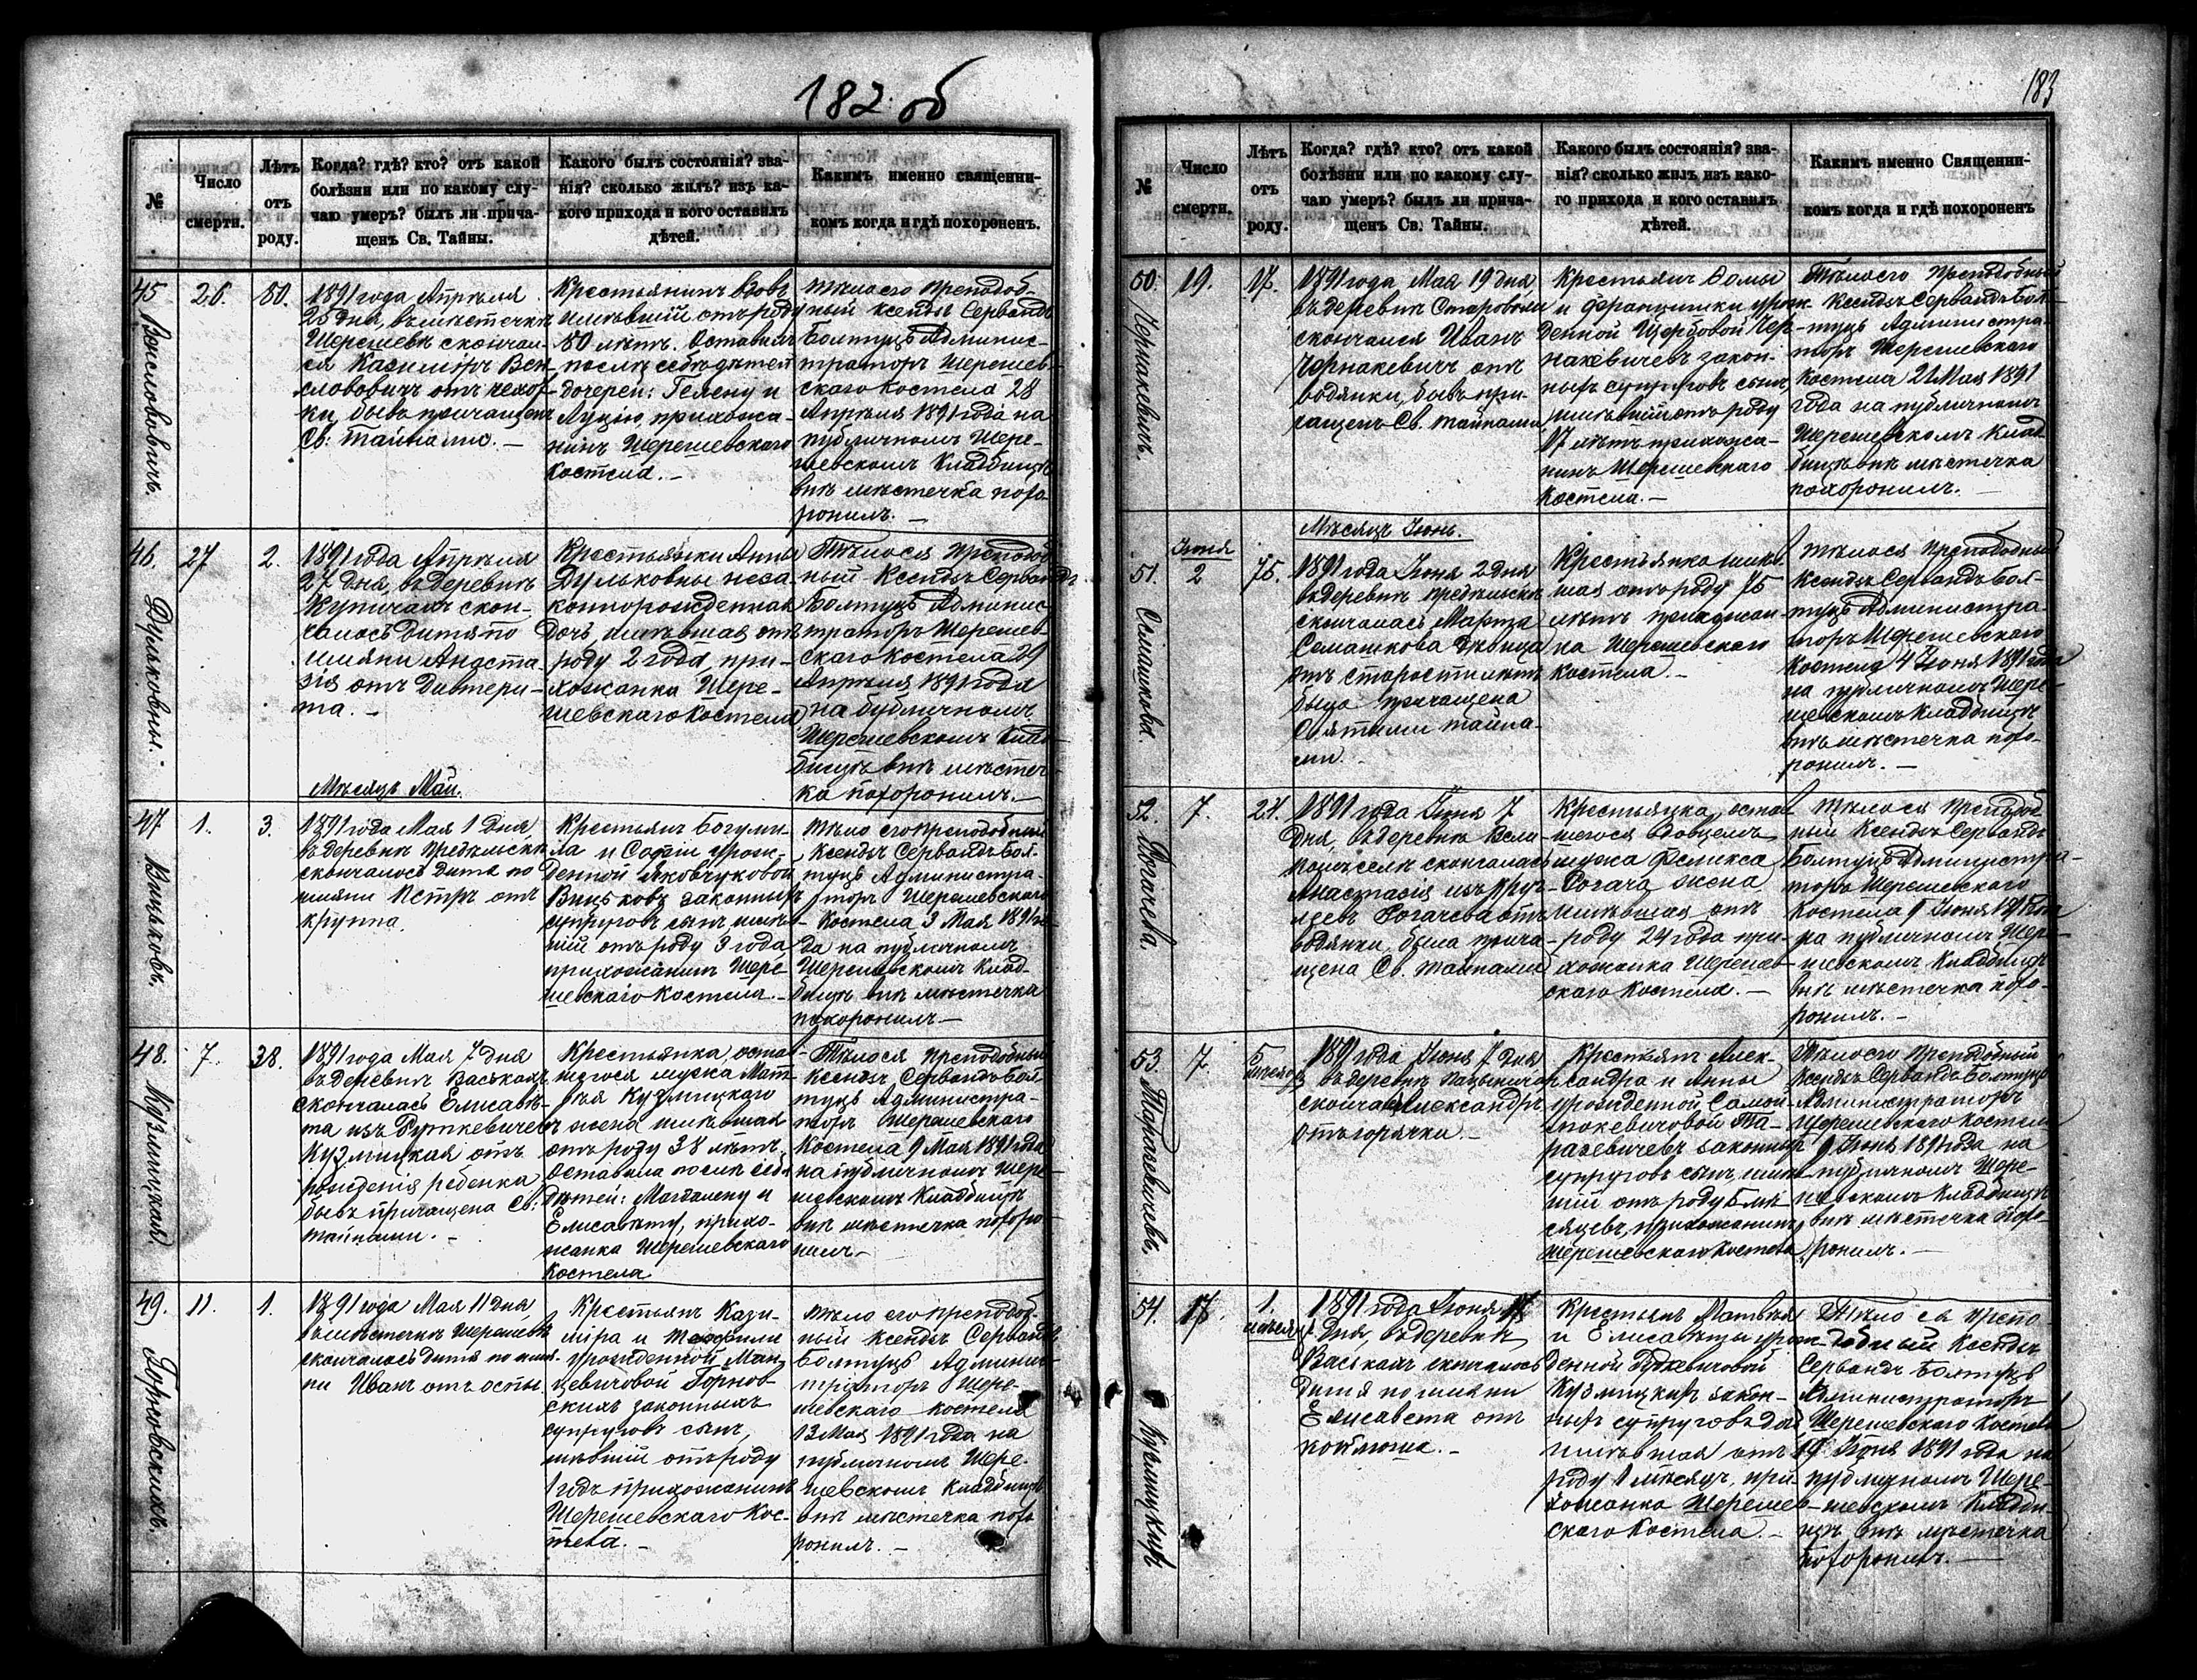 182 об
№
Число
смерти.
Лѣтъ
отъ
роду.
Когда? гдѣ? кто? отъ какой
болѣзни или по какому слу-
чаю умеръ? былъ ли прича-
щенъ Св. Тайны.
Какого былъ состоянія? зва-
нія? сколько жилъ? изъ ка-
кого прихода и кого оставилъ
дѣтей.
Какимъ именно священни-
комъ когда и гдѣ похороненъ.
45
26.
80.
1891 года Апрѣля
26 дня, въ мѣстечкѣ
Шерешевѣ скончал-
ся Казиміръ Вен-
словovичъ отъ чехот-
ки, бывъ причащенъ
Св: тайнами. —
Крестьянинъ вдовъ
имѣвшій отъ роду
80 лѣтъ. Оставилъ
послѣ себя дѣтей
дочерей: Гелену и
Луцію, прихожа-
нинъ Шерешевскаго
костела. —
тѣло его преподоб-
ный ксендзъ Сервандъ
Болтуць Админис-
траторъ Шерешев-
скаго костела 28
Апрѣля 1891 года на
публичномъ Шере-
шевскомъ кладбищѣ
внѣ мѣстечка похо-
ронилъ. —
46.
Дульковны.
27
2.
1891 года Апрѣля
27 дня, въ деревнѣ
Купичахъ скон-
чалось дитя по
имяни Анаста-
зія отъ дитери-
та. —
Крестьянки Анны
Дульковны неза-
коннорожденная
дочь, имѣвшая отъ
роду 2 года, при-
хожанка Шере-
шевскаго костела
Тѣло ея преподоб-
ный Ксендзъ Сервандъ
Болтуць Админис-
траторъ Шерешев-
скаго костела 29
Апрѣля 1891 года
на публичномъ
Шерешевскомъ клад-
бищѣ внѣ мѣстеч-
ка похоронилъ. —
Мѣсяцъ Май.
47
Вицьковъ.
1.
3.
1891 года Мая 1 дня,
въ деревнѣ Предѣльскѣ
скончалось дитя по
имяни Петръ отъ
круппа.
Крестьянъ Богуми-
ла и Софіи урож-
денной Яковчуковой
Вицьковъ законныхъ
супруговъ сынъ, имѣв-
шій отъ роду 3 года,
прихожанинъ Шере-
шевскаго костела. —
тѣло его преподобный
Ксендзъ Сервандъ Бол-
туць Администра-
торъ Шерешевскаго
Костела 3 Мая 1891 го-
да на публичномъ
Шерешевскомъ клад-
бищѣ внѣ мѣстечка
похоронилъ —
48.
Кузмицкая.
7.
38.
1891 года Мая 7 дня
въ деревнѣ Васькахъ
скончалась Елисаве-
та изъ Руткевичевъ
Кузмицкая отъ
рожденія ребенка
бывъ причащена Св:
тайнами. —
Крестьянка, остав-
шегося мужа Мат-
вѣя Кузмицкаго
жена имѣвшая
отъ роду 38 лѣтъ.
Оставила послѣ себя
дѣтей: Магдалену и
Елисавету, прихо-
жанка Шерешевскаго
костела
Тѣло ея преподобный
ксендзъ Сервандъ Бол-
туць Администра-
торъ Шерешевскаго
Костела 9 Мая 1891 года
на публичномъ Шере-
шевскомъ кладбищѣ
внѣ мѣстечка похоро-
нилъ —
49.
Горновскихъ.
11.
1.
1891 года Мая 11 дня,
въ мѣстечкѣ Шерешевѣ
скончалось дитя по имя-
ни Иванъ отъ оспы.
Крестьянъ Кази-
міра и Теофили
урожденной Ман-
цевичовой Горнов-
скихъ законныхъ
супруговъ сынъ,
имѣвшій отъ роду
1 годъ прихожанинъ
Шерешевскаго Кос-
тела. —
тѣло его преподоб-
ный ксендзъ Сервандъ
Болтуць Админис-
траторъ Шере-
шевскаго костела
13 Мая 1891 года на
публичномъ Шере-
шевскомъ кладбищѣ
внѣ мѣстечка похо-
ронилъ. —
183
№
Число
смерти.
Лѣтъ
отъ
роду.
Когда? гдѣ? кто? отъ какой
болѣзни или по какому слу-
чаю умеръ? былъ ли прича-
щенъ Св. Тайны.
Какого былъ состоянія? зва-
нія? сколько жилъ изъ како-
го прихода и кого оставилъ
дѣтей.
Какимъ именно Священни-
комъ когда и гдѣ похороненъ
50.
Чернакевичъ.
19.
17.
1891 года Мая 19 дня
въ деревнѣ Старовѣи
скончался Иванъ
Чернакевичъ отъ
водянки, бывъ при-
чащенъ Св. тайнами
Крестьянъ Ѳомы
и Францишки урож-
денной Щербовой Чер-
накевичевъ закон-
ныхъ супруговъ сынъ,
имѣвшій отъ роду
17 лѣтъ прихожа-
нинъ Шерешевскаго
Костела. —
Тѣло его преподобный
Ксендзъ Сервандъ Бол-
туць Администра-
торъ Шерешевскаго
костела 21 Мая 1891
года на публичномъ
Шерешевскомъ клад-
бищѣ внѣ мѣстечка
похоронилъ. —
Мѣсяцъ Іюнь.
51.
Семашкова.
Іюня
2
75.
1891 года Іюня 2 дня
въ деревнѣ Предѣльскѣ
скончалась Марта
Семашкова дѣвица
отъ старости лѣтъ
была причащена
Святыми тайна-
ми.
Крестьянка имѣв-
шая отъ роду 75
лѣтъ прихожан-
ка Шерешевскаго
костела. —
тѣло ея преподобный
Ксендзъ Сервандъ Бол-
туць Администра-
торъ Шерешевскаго
Костела 4 Іюня 1891 года
на публичномъ Шере-
шевскомъ кладбищѣ
внѣ мѣстечка похо-
ронилъ. —
52.
Рогачева.
7.
24.
1891 года Іюня 7
дня, въ деревнѣ
скончалась
Анастазія
Рогачева отъ
водянки, была прича-
щена Св. тайнами
Крестьянка, остав-
шегося вдовцемъ
мужа Феликса
Рогача жена
имѣвшая отъ
роду 24 года при-
хожанка Шерешев-
скаго костела. —
Тѣло ея преподоб-
ный Ксендзъ Сервандъ
Болтуць Администра-
торъ Шерешевскаго
Костела 9 Іюня 1891 года
на публичномъ Шере-
шевскомъ кладбищѣ
внѣ мѣстечка похо-
ронилъ. —
53.
Таразевичевъ.
7
1891 года Іюня 7 дня
въ деревнѣ
скончался Александръ
отъ горячки. —
Крестьянъ Алек-
сандра и Анны
урожденной Самой-
Та-
разевичевъ законныхъ
супруговъ сынъ, имѣв-
шій отъ роду мѣ-
сяцевъ, прихожанинъ
Шерешевскаго костела
Тѣло его преподобный
Ксендзъ Сервандъ Болтуць
Администраторъ
Шерешевскаго Костела
9 Іюня 1891 года на
публичномъ Шере-
шевскомъ кладбищѣ
внѣ мѣстечка похо-
ронилъ. —
54.
Кузмицкихъ
17.
1.
мѣсяцъ
1891 года Іюня 17
дня, въ деревнѣ
Васькахъ скончалось
дитя по имяни
Елисавета отъ
коклюша. —
Крестьянъ Матвѣя
и Елисаветы урож-
денной Рудкевичовой
Кузмицкихъ закон-
ныхъ супруговъ дочь,
имѣвшая отъ
роду 1 мѣсяцъ, при-
хожанка Шерешев-
скаго Костела —
Тѣло ея препо-
добный Ксендзъ
Сервандъ Болтуць
Администраторъ
Шерешевскаго Костела
19 Іюня 1891 года на
публичномъ Шере-
шевскомъ кладби-
щѣ внѣ мѣстечка
похоронилъ. —